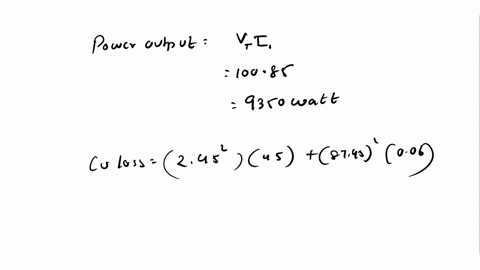 Power output = V_T I_1
= 100.85
= 9350 watt
Cu loss = (2.45²)(45) + (87.45)² (0.06)